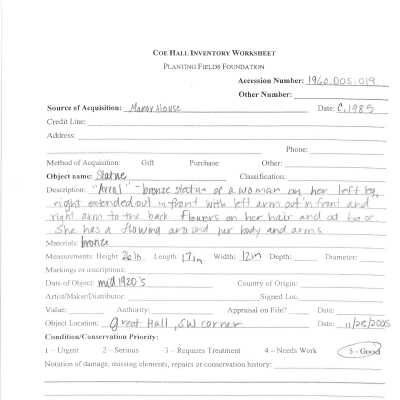 COE HALL INVENTORY WORKSHEET
PLANTING FIELDS FOUNDATION
Accession Number: 1960.005.019
Other Number:
Source of Acquisition: Manor House Date: C.1985
Credit Line:
Address:
Phone:
Method of Acquisition: Gift Purchase Other:
Object name: Statue Classification:
Description: - bronze statue of a woman on her left leg,
right extended out in front with left arm out in front and
right arm to the back. Flowers on her hair and at base
She has a flowing around her body and arms
Materials: bronze
Measurements: Height: 26in Length: 17in Width: 12in Depth: Diameter:
Markings or inscriptions:
Date of Object: mid 1920's Country of Origin:
Artist/Maker/Distributor: Signed Loc.
Value: Authority: Appraisal on File? Date:
Object Location: Great Hall, SW corner Date: 11/28/2005
Condition/Conservation Priority:
1 – Urgent 2 – Serious 3 – Requires Treatment 4 – Needs Work 5 – Good
Notation of damage, missing elements, repairs or conservation history: